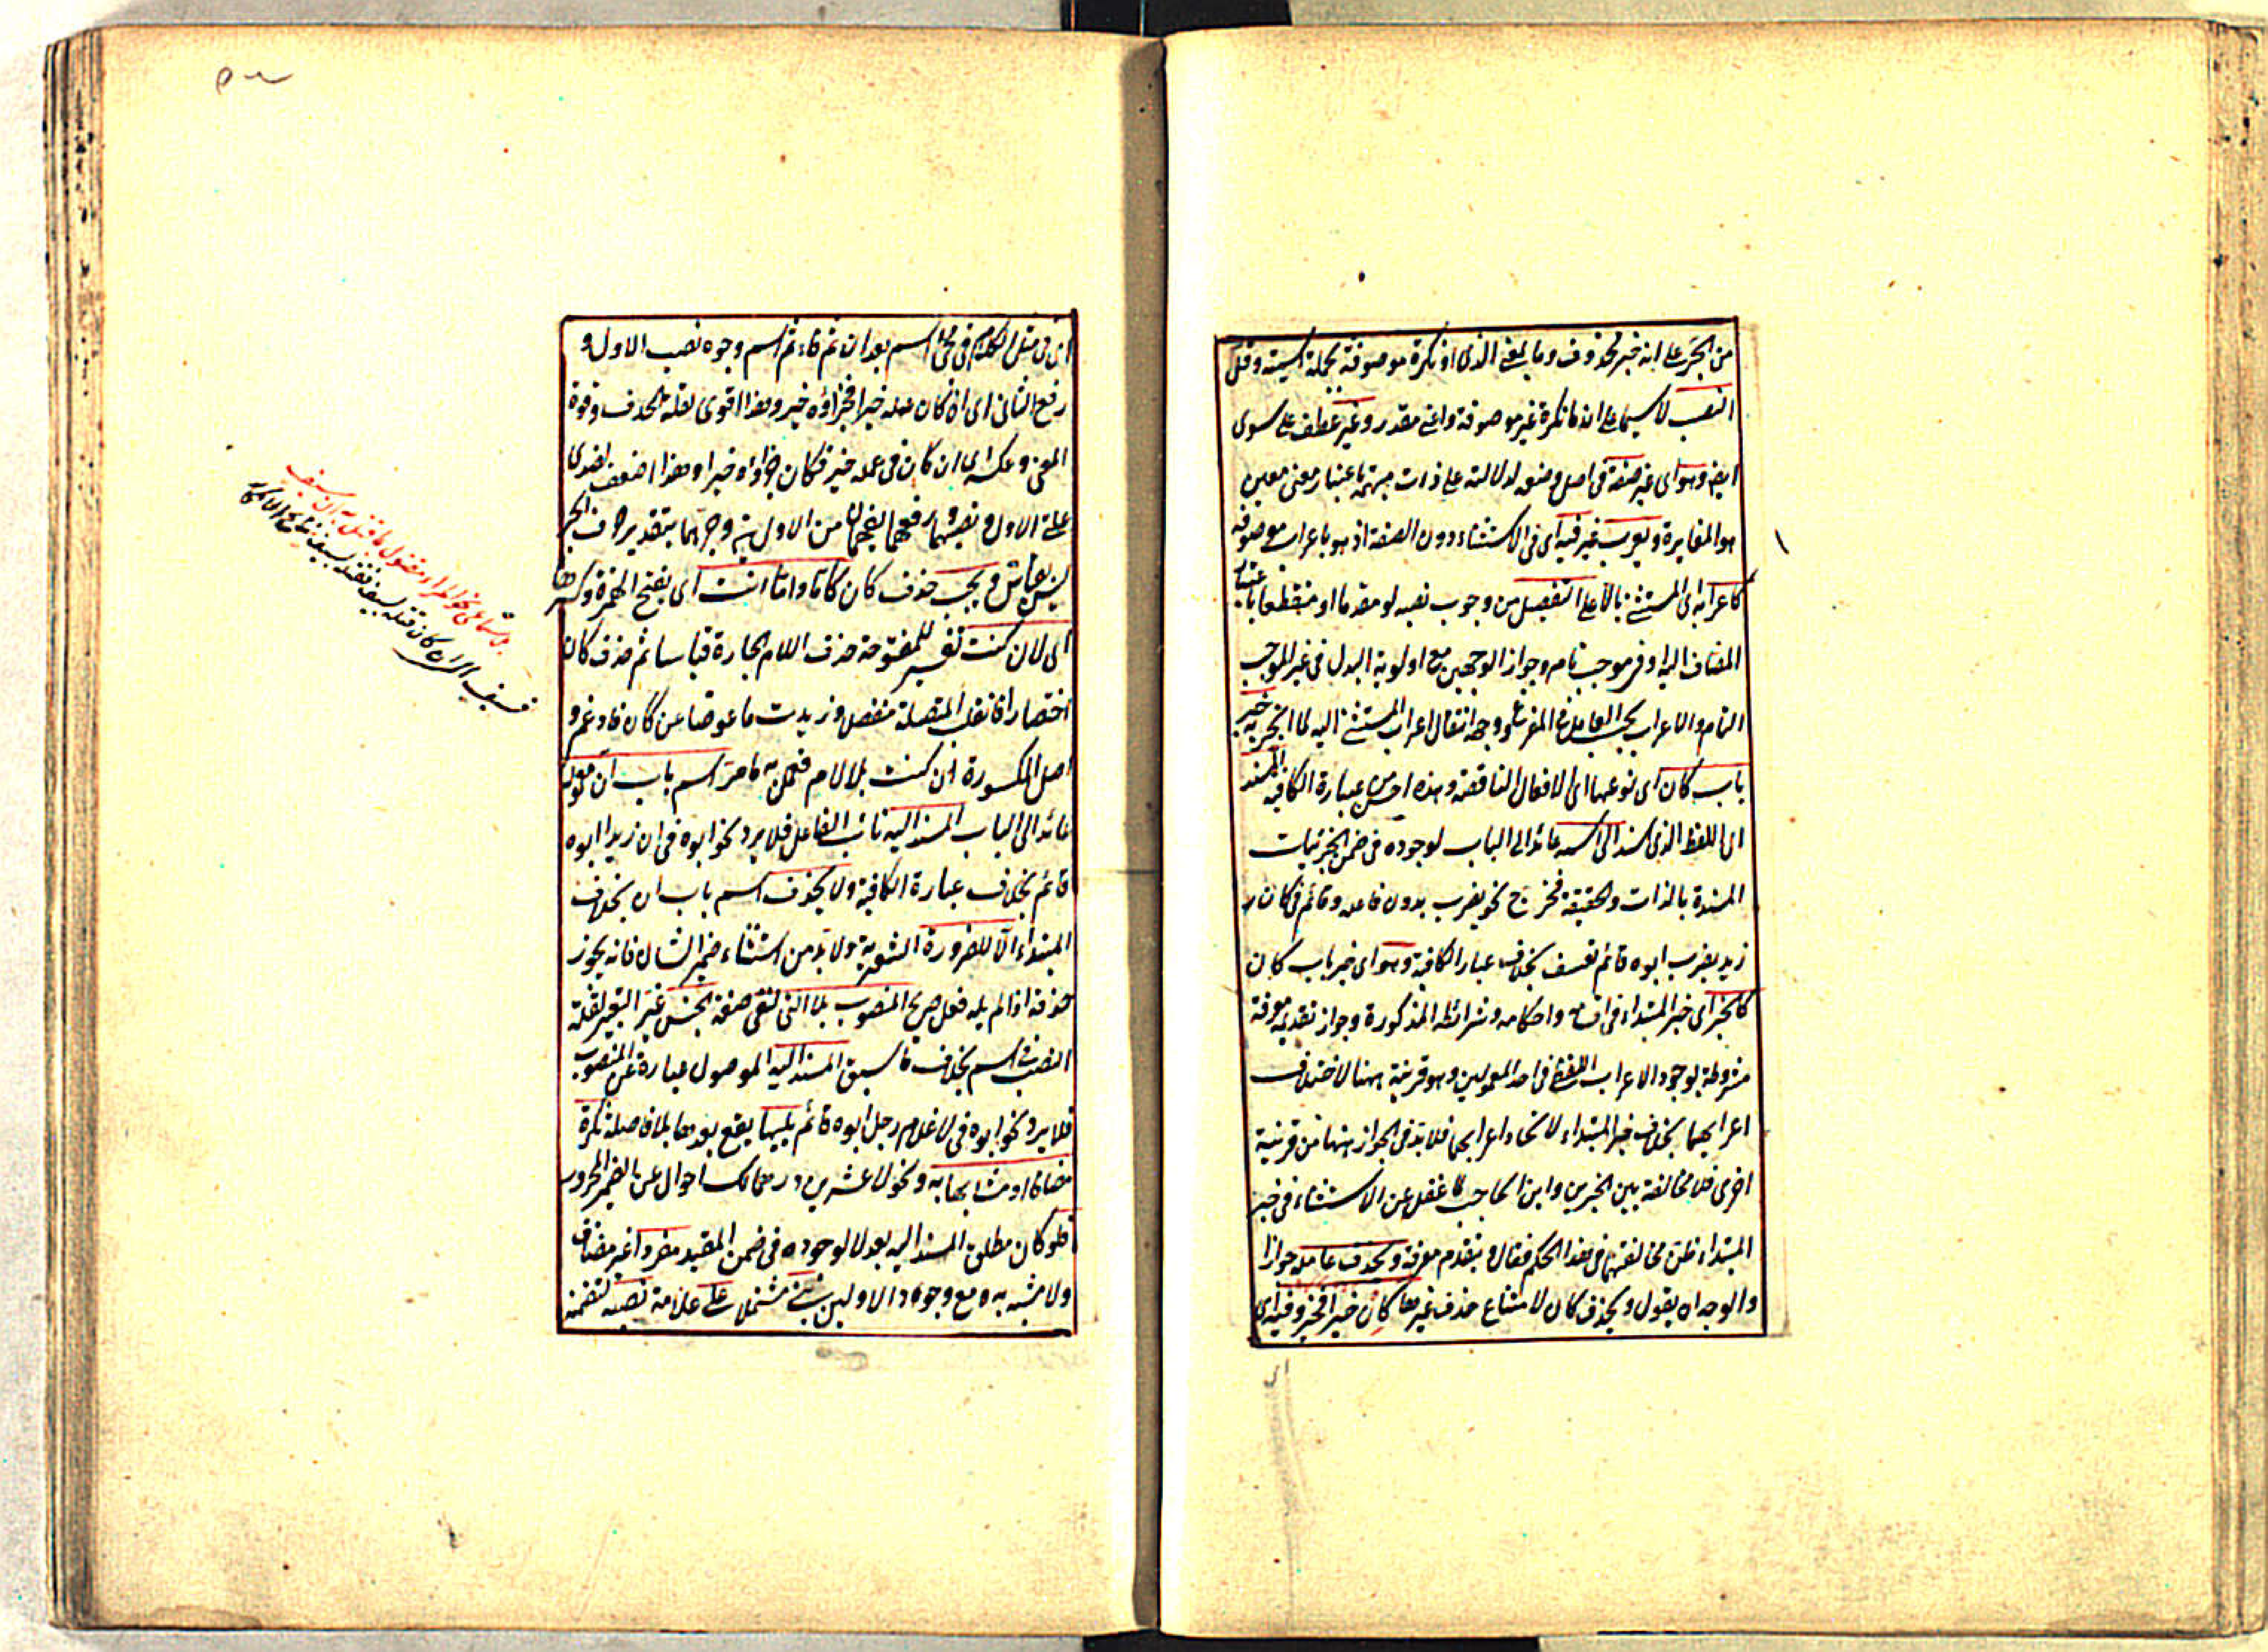 من الجر على انه خبر محذوف وما بمعنى الذى او نكرة موصوفة بجملة اسمية وقل
النصب لاسيما على ان ما نكرة غير موصوفة واعنى مقدر وغير عطف على سوى
ايضا وهو اى غير صفة فى اصل وضعه لدلالته على ذات مبهمة باعتبار معنى معين
هو المغايرة ويعرب غير فيه اى فى الاستثناء دون الصفة اذ هو باعراب موصوفه
كاعرابه اى المستثنى بالا على التفصيل من وجوب نصبه لو مقدما او منقطعا باعتبار
المضاف اليه او فى موجب تام وجواز الوجهين مع اولوية البدل فى غير الموجب
التام والاعراب بحسب العامل فى المفرغ ووجه انتقال اعراب المستثنى اليه لما انجر به خبر
باب كان اى نوعها اى الافعال الناقصة وهذه احسن من عبارة الكافية المسند
اى اللفظ الذى اسند الى اسمه عائد الى الباب لوجوده فى ضمن الجزئيات
المسندة بالذات والحقيقة فخرج نحو يضرب بدون فاعله وقائم فى كان
زيد يضرب ابوه قائم تعسف بخلاف عبارة الكافية وهو اى خبر باب كان
كالخبر اى خبر المبتداء فى اقسامه واحكامه وشرائطه المذكورة وجواز تقديمه معرفة
مشروطة بوجود الاعراب اللفظى فى احد المعمولين وهو قرينة ههنا لاختلاف
اعرابهما بخلاف خبر المبتداء لاتحاد اعرابهما فلا بد فى الجواز منها من قرينة
اخرى فلا مخالفة بين الخبرين وابن الحاجب لما غفل عن الاستثناء فى خبر
المبتداء ظن مخالفتهما فى هذا الحكم فقال ويتقدم معرفة ويحذف عامله جوازا
والوجه ان يقول ويحذف كان لامتناع حذف غيرها كان خيرا فخير وفيه اى
اى فى مثل الكلام فى مجئ اسم بعد ان ثم فاء ثم اسم وجوه نصب الاول و
رفع الثانى اى ان كان عمله خيرا فجزاؤه خير وهذا اقوى لقلة الحذف وقوة
المعنى وعكسه اى ان كان فى عمله خير فكان جزاؤه خيرا وهذا اضعف لضدى
علة الاول ونصبهما ورفعهما يفهمان من الاول بين وجههما بتقدير حرف الجر
ويجب حذف كان كاما واما انت اى بفتح الهمزة وكسرها
اى لان كنت تفسير للمفتوحة حذف اللام الجارة قياسا ثم حذف كان
اختصارا فانقلب المتصلة منفصل وزيدت ما عوضا عن كان فادغم و
اصل المكسورة ان كنت بلا لام فعمل به ما مر اسم باب ان معموله
عائد الى الباب المسند اليه نائب الفاعل فلا يرد نحو ابوه فى ان زيدا ابوه
قائم بخلاف عبارة الكافية ولا يحذف اسم باب ان بخلاف
المبتداء الا للضرورة الشعرية ولا بد من استثناء ضمير الشان فانه يجوز
حذفه اذا لم يله فعل صريح المنصوب بلا التى لنفى صفة الجنس غير التعبير لقلة
النصب فى اسم بخلاف ما سبق المسند اليه الموصول عبارة عن المنصوب
فلا يرد نحو ابوه فى لا غلام رجل ابوه قائم يليها يقع بعدها بلا فاصلة نكرة
مضافا او مشابها به ونحو لا عشرين درهما لك احوال عن الضمير المجرور
فلو كان مطلق المسند اليه بعد لا لوجوده فى ضمن المقيد مفردا غير مضاف
ولا مشبه به مع وجود الاولين بنى مشتملا على علامة نصبه لتضمنه